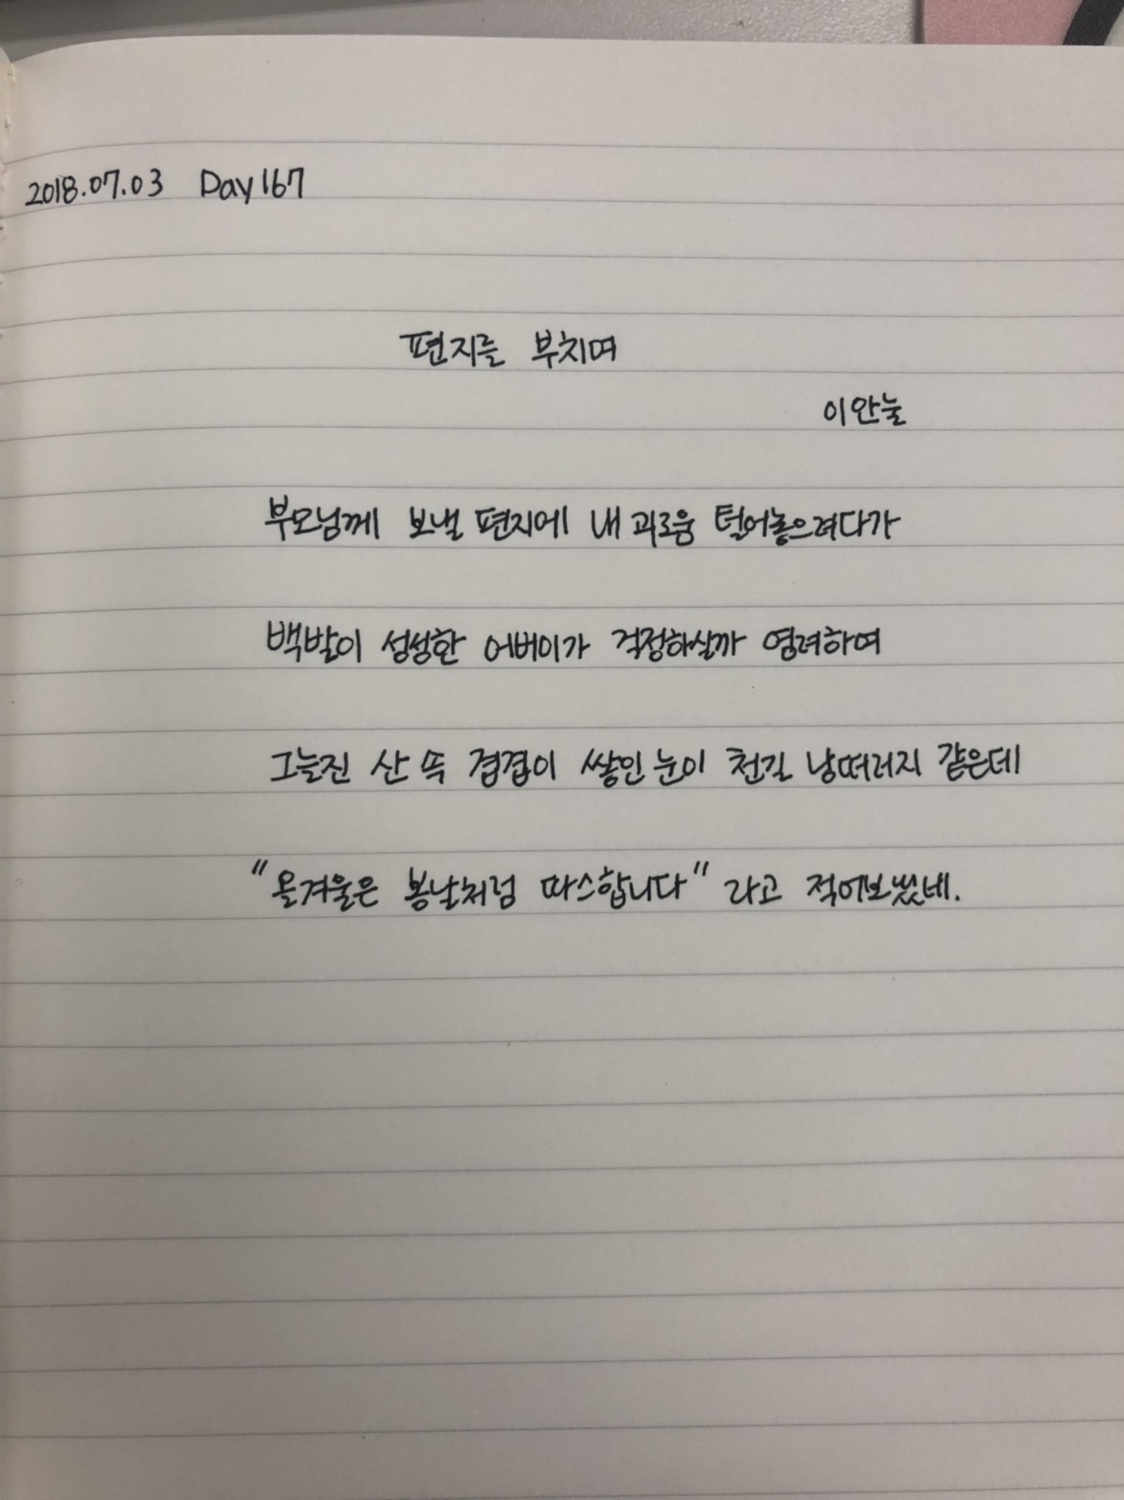 2018.07.03 Day 167
편지를 부치며
이안눌
부모님께 보낼 편지에 내 괴로움 털어놓으려다가
백발이 성성한 어버이가 걱정하실까 염려하여
그늘진 산 속 겹겹이 쌓인 눈이 천길 낭떠러지 같은데
"올겨울은 봄날처럼 따스합니다" 라고 적어보냈네.